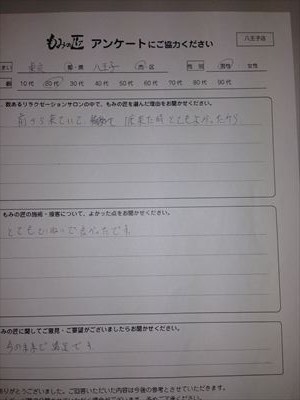 もみの匠 アンケートにご協力ください 八王子店
まい 東京 都・県 八王子 市・区 性別 男性・女性
齢 10代 20代 30代 40代 50代 60代 70代 80代 90代
数あるリラクゼーションサロンの中で、もみの匠を選んだ理由をお聞かせください。
前から来ていて、 て とてもよかったから
もみの匠の施術・接客について、よかった点をお聞かせください。
とてもていねいで良かったです
みの匠に関してご意見・ご要望がございましたらお聞かせください。
今のままで満足です
ありがとうございました。ご回答いただいた内容は今後の参考とさせていただきます。